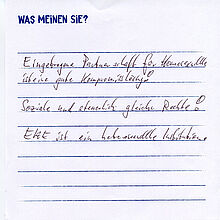 WAS MEINEN SIE?
Eingetragene Partnerschaft für Homosexuelle
ist eine gute Kompromisslösung!
Soziale und steuerlich gleiche Rechte!
EHE ist ein liebenswolle Institution.